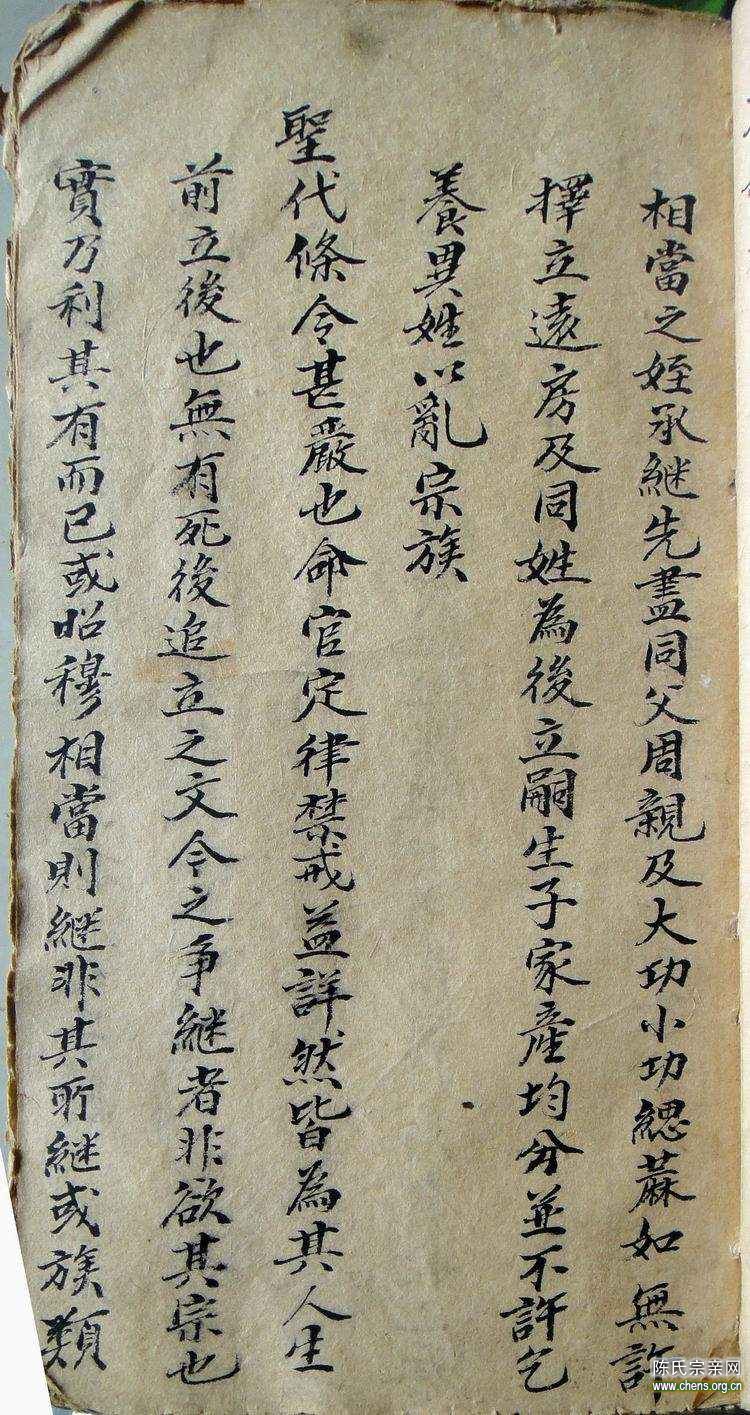 相當之姪承継先盡同父周親及大功小功緦蔴如無許
擇立遠房及同姓為後立嗣生子家產均分並不許乞
養異姓以亂宗族
聖代條令甚嚴也命官定律禁戒益詳然皆為其人生
前立後也無有死後追立之文令之爭継者非欲其宗也
實乃利其有而已或昭穆相當則継非其所継或族類
陈氏宗亲网
www.chens.org.cn